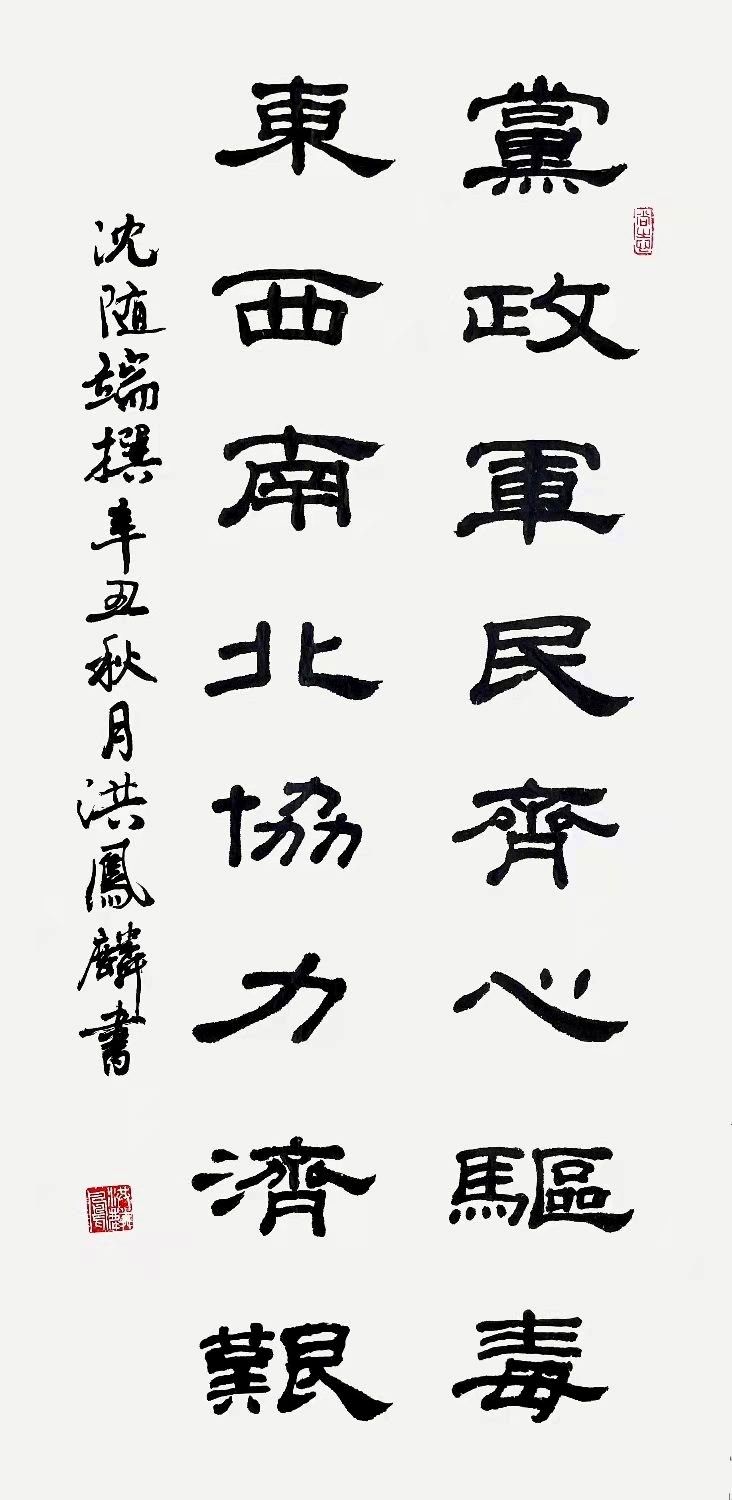 黨政軍民齊心驅毒
東西南北協力濟艱
沈随端撰辛丑秋月洪鳳麟書